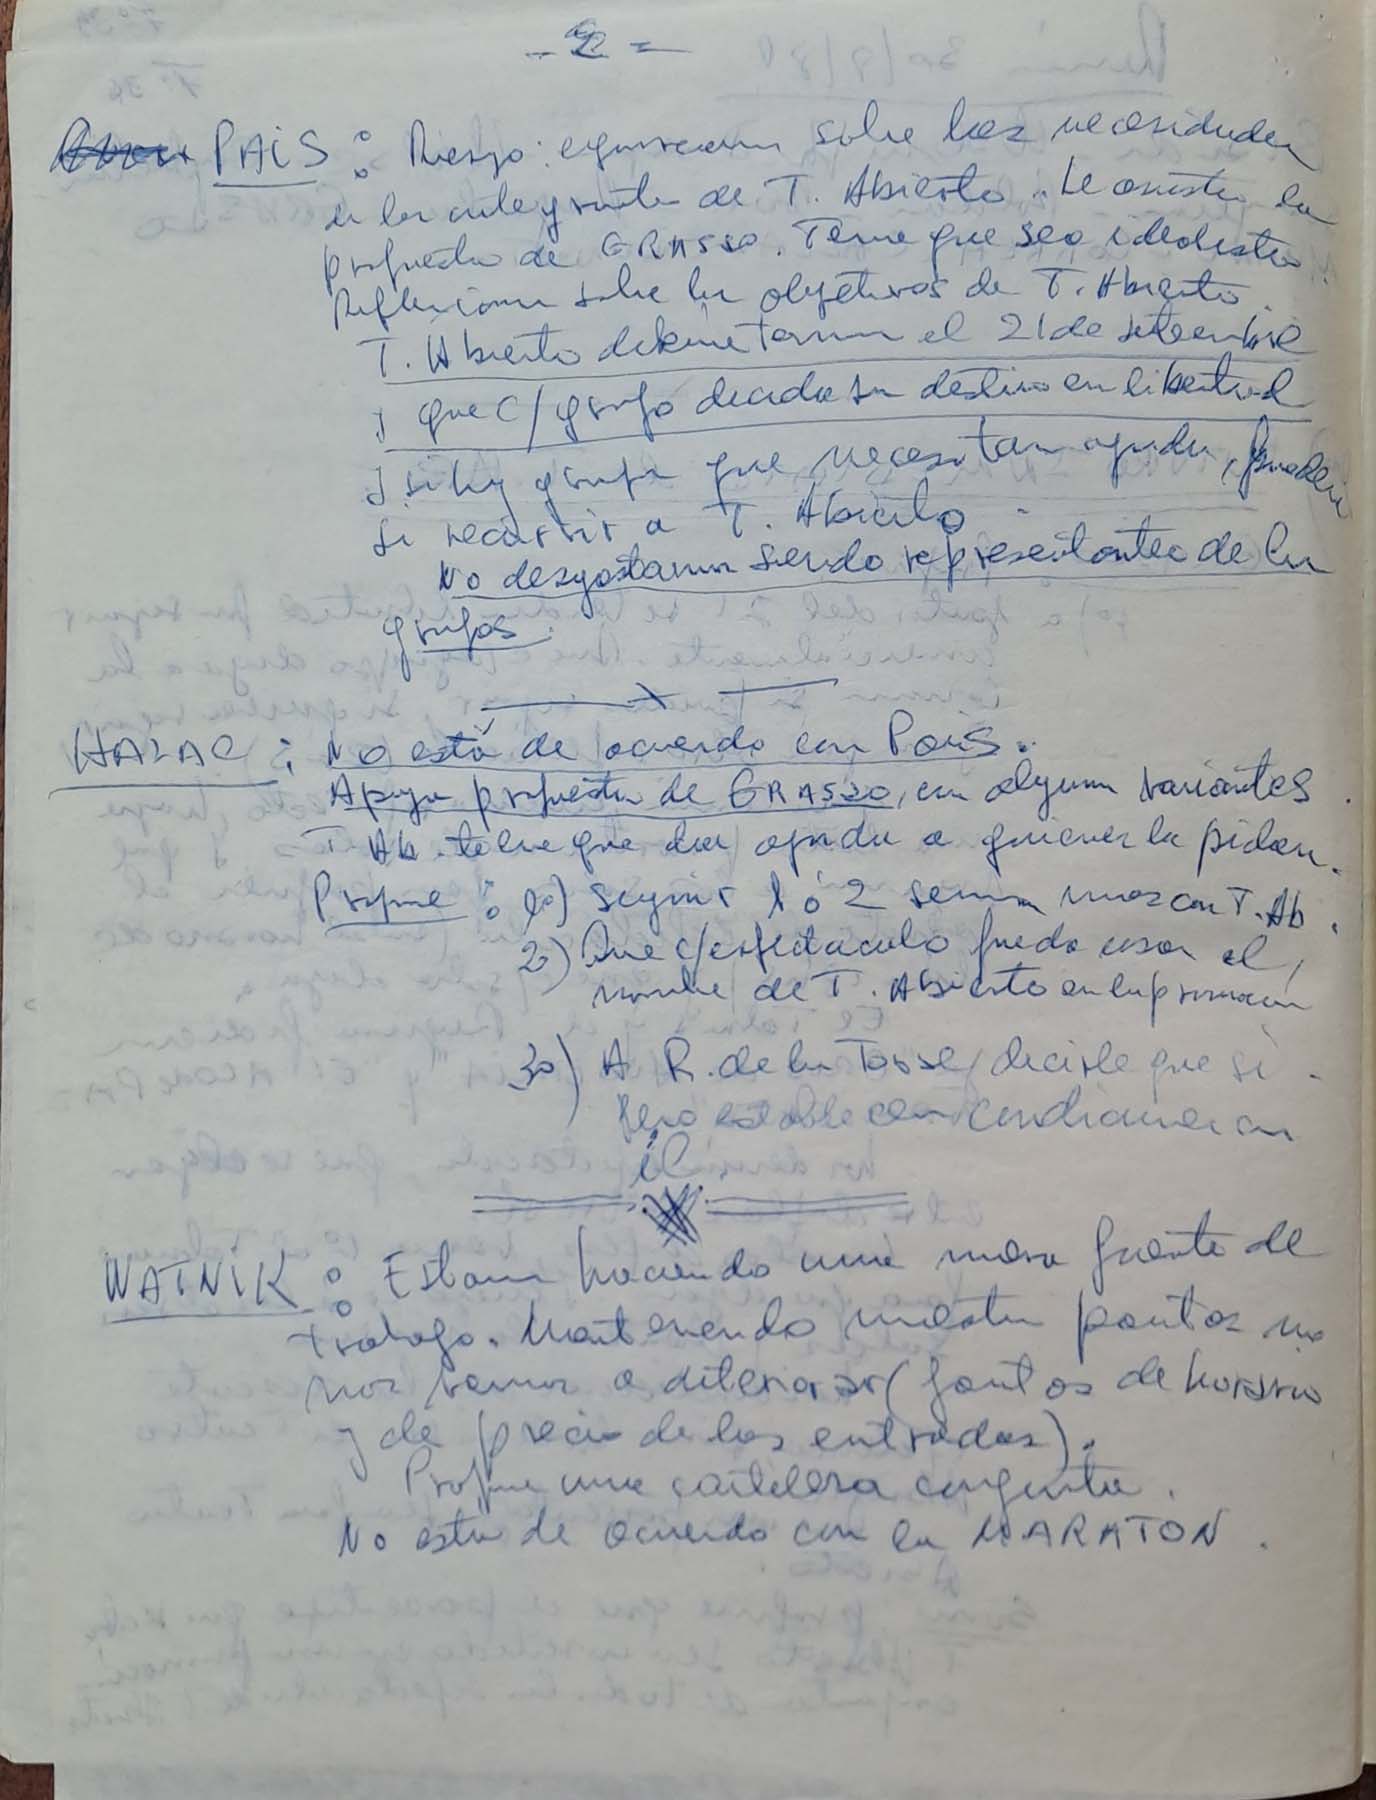 - 2 =
PAIS : Riesgo : equivocarnos sobre las necesidades
de los integrantes de T. Abierto. Le asusta la
propuesta de GRASSO. Teme que sea idealista.
Reflexionar sobre los objetivos de T. Abierto.
T. Abierto debe terminar el 21 de setiembre
y que c/grupo decida su destino en libertad
y si hay grupos que necesitan ayuda, pueden
si recurrir a T. Abierto.
No desgastarnos siendo representantes de los
grupos.
HALAC : No está de acuerdo con Pais.
Apoya propuesta de GRASSO, con algunas variantes.
T. Ab. tiene que dar ayuda a quienes la pidan.
Propone : 1o) Seguir 1 ó 2 semanas mas con T. Ab.
2o) Que c/espectaculo pueda usar el
nombre de T. Abierto en la promocion
3o) A R. de la Torre, decirle que si.
Pero establecer condiciones con
él.
WAINIK : Estamos haciendo una nueva fuente de
trabajo. Manteniendo nuestras pautas no
nos vamos a deteriorar (pautas de horario
y de precio de las entradas).
Propone una cartelera conjunta.
No está de acuerdo con la MARATON.